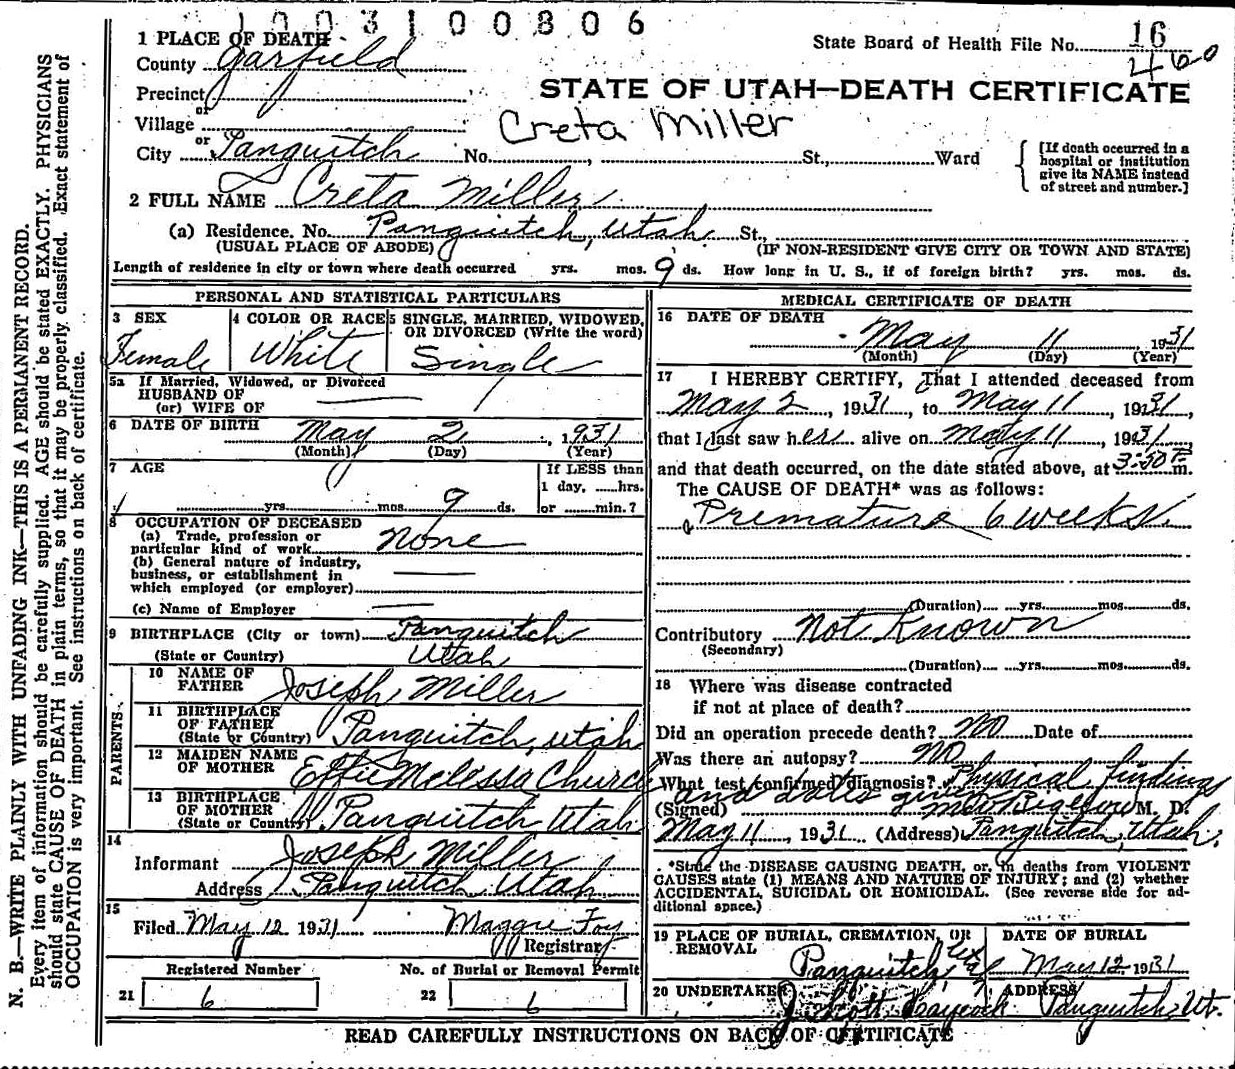 1003100806
1 PLACE OF DEATH
State Board of Health File No. 16
460
County Garfield
Precinct
or
Village
or
City Panguitch No. , St., Ward
STATE OF UTAH—DEATH CERTIFICATE
Creta Miller
[If death occurred in a
hospital or institution
give its NAME instead
of street and number.]
2 FULL NAME Creta Miller
(a) Residence. No. Panguitch, Utah St.,
(USUAL PLACE OF ABODE) (IF NON-RESIDENT GIVE CITY OR TOWN AND STATE)
Length of residence in city or town where death occurred yrs. mos. 9 ds. How long in U. S., if of foreign birth? yrs. mos. ds.
PERSONAL AND STATISTICAL PARTICULARS
3 SEX
Female
4 COLOR OR RACE
White
5 SINGLE, MARRIED, WIDOWED,
OR DIVORCED (Write the word)
Single
5a If Married, Widowed, or Divorced
HUSBAND OF
(or) WIFE OF
6 DATE OF BIRTH May 2, 1931
(Month) (Day) (Year)
7 AGE
yrs. mos. 9 ds.
If LESS than
1 day, ......hrs.
or ......min.?
8 OCCUPATION OF DECEASED
(a) Trade, profession or
particular kind of work None
(b) General nature of industry,
business, or establishment in
which employed (or employer)
(c) Name of Employer
9 BIRTHPLACE (City or town) Panguitch
(State or Country) Utah
PARENTS
10 NAME OF
FATHER Joseph Miller
11 BIRTHPLACE
OF FATHER
(State or Country) Panguitch, Utah
12 MAIDEN NAME
OF MOTHER Effie Melessa Church
13 BIRTHPLACE
OF MOTHER
(State or Country) Panguitch Utah
14
Informant Joseph Miller
Address Panguitch Utah
15
Filed May 12 1931 Maggie Foy
Registrar
Registered Number
21 6
No. of Burial or Removal Permit
22 6
MEDICAL CERTIFICATE OF DEATH
16 DATE OF DEATH
May 11 1931
(Month) (Day) (Year)
17 I HEREBY CERTIFY, That I attended deceased from
May 2, 1931, to May 11, 1931,
that I last saw her alive on May 11, 1931,
and that death occurred, on the date stated above, at 3:50 P.m.
The CAUSE OF DEATH* was as follows:
Premature 6 weeks.
(Duration) yrs. mos. ds.
Contributory Not Known
(Secondary)
(Duration) yrs. mos. ds.
18 Where was disease contracted
if not at place of death?
Did an operation precede death? No Date of
Was there an autopsy? No
What test confirmed diagnosis? Physical findings
and dates given
(Signed) Bigelow M. D.
May 11, 1931 (Address) Panguitch, Utah.
*State the DISEASE CAUSING DEATH, or, in deaths from VIOLENT
CAUSES state (1) MEANS AND NATURE OF INJURY; and (2) whether
ACCIDENTAL, SUICIDAL OR HOMICIDAL. (See reverse side for ad-
ditional space.)
19 PLACE OF BURIAL, CREMATION, OR
REMOVAL
Panguitch,
DATE OF BURIAL
May 12 1931
20 UNDERTAKER
J. Scott Haycock
ADDRESS
Panguitch, Ut.
READ CAREFULLY INSTRUCTIONS ON BACK OF CERTIFICATE
N. B.—WRITE PLAINLY WITH UNFADING INK—THIS IS A PERMANENT RECORD.
Every item of information should be carefully supplied. AGE should be stated EXACTLY. PHYSICIANS
should state CAUSE OF DEATH in plain terms, so that it may be properly classified. Exact statement of
OCCUPATION is very important. See instructions on back of certificate.